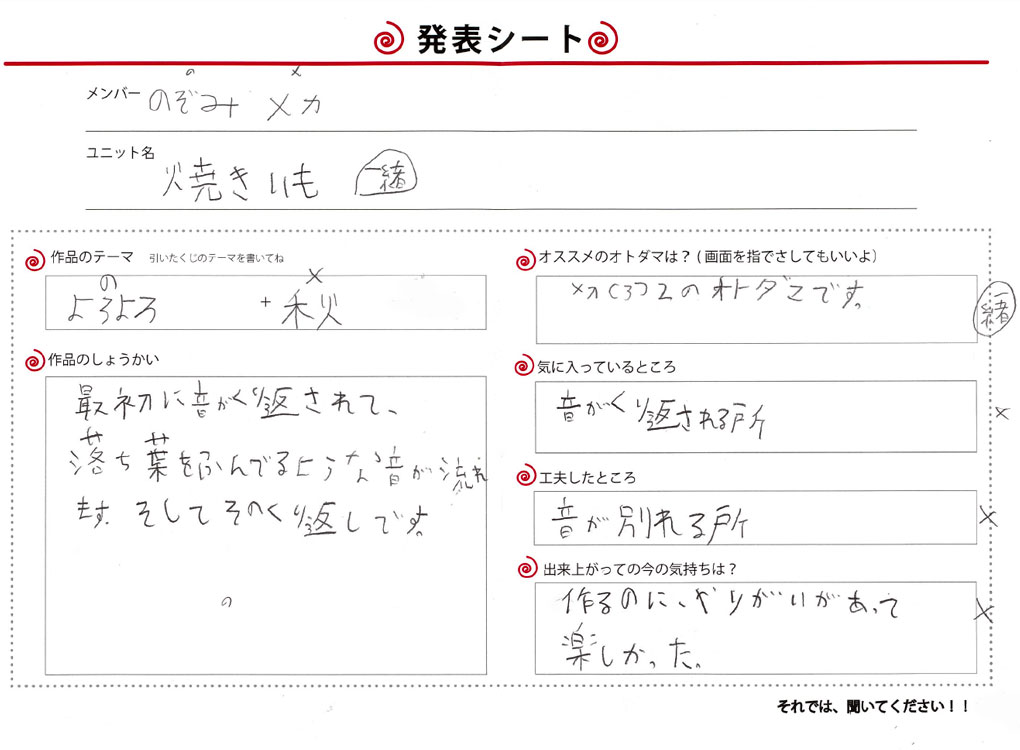 発表シート
の メ
メンバー のぞみ メカ
ユニット名
焼きいも 一緒
作品のテーマ 引いたくじのテーマを書いてね
の メ
よろよろ + 秋
作品のしょうかい
最初に音がくり返されて、
落ち葉をふんでるような音が流れ
ます。そしてそのくり返しです。
の
オススメのオトダマは？(画面を指でさしてもいいよ)
のオトダマです。
一緒
気に入っているところ
音がくり返される所
メ
工夫したところ
音が別れる所
メ
出来上がっての今の気持ちは？
作るのに、やりがいがあって
楽しかった。
メ
それでは、聞いてください！！